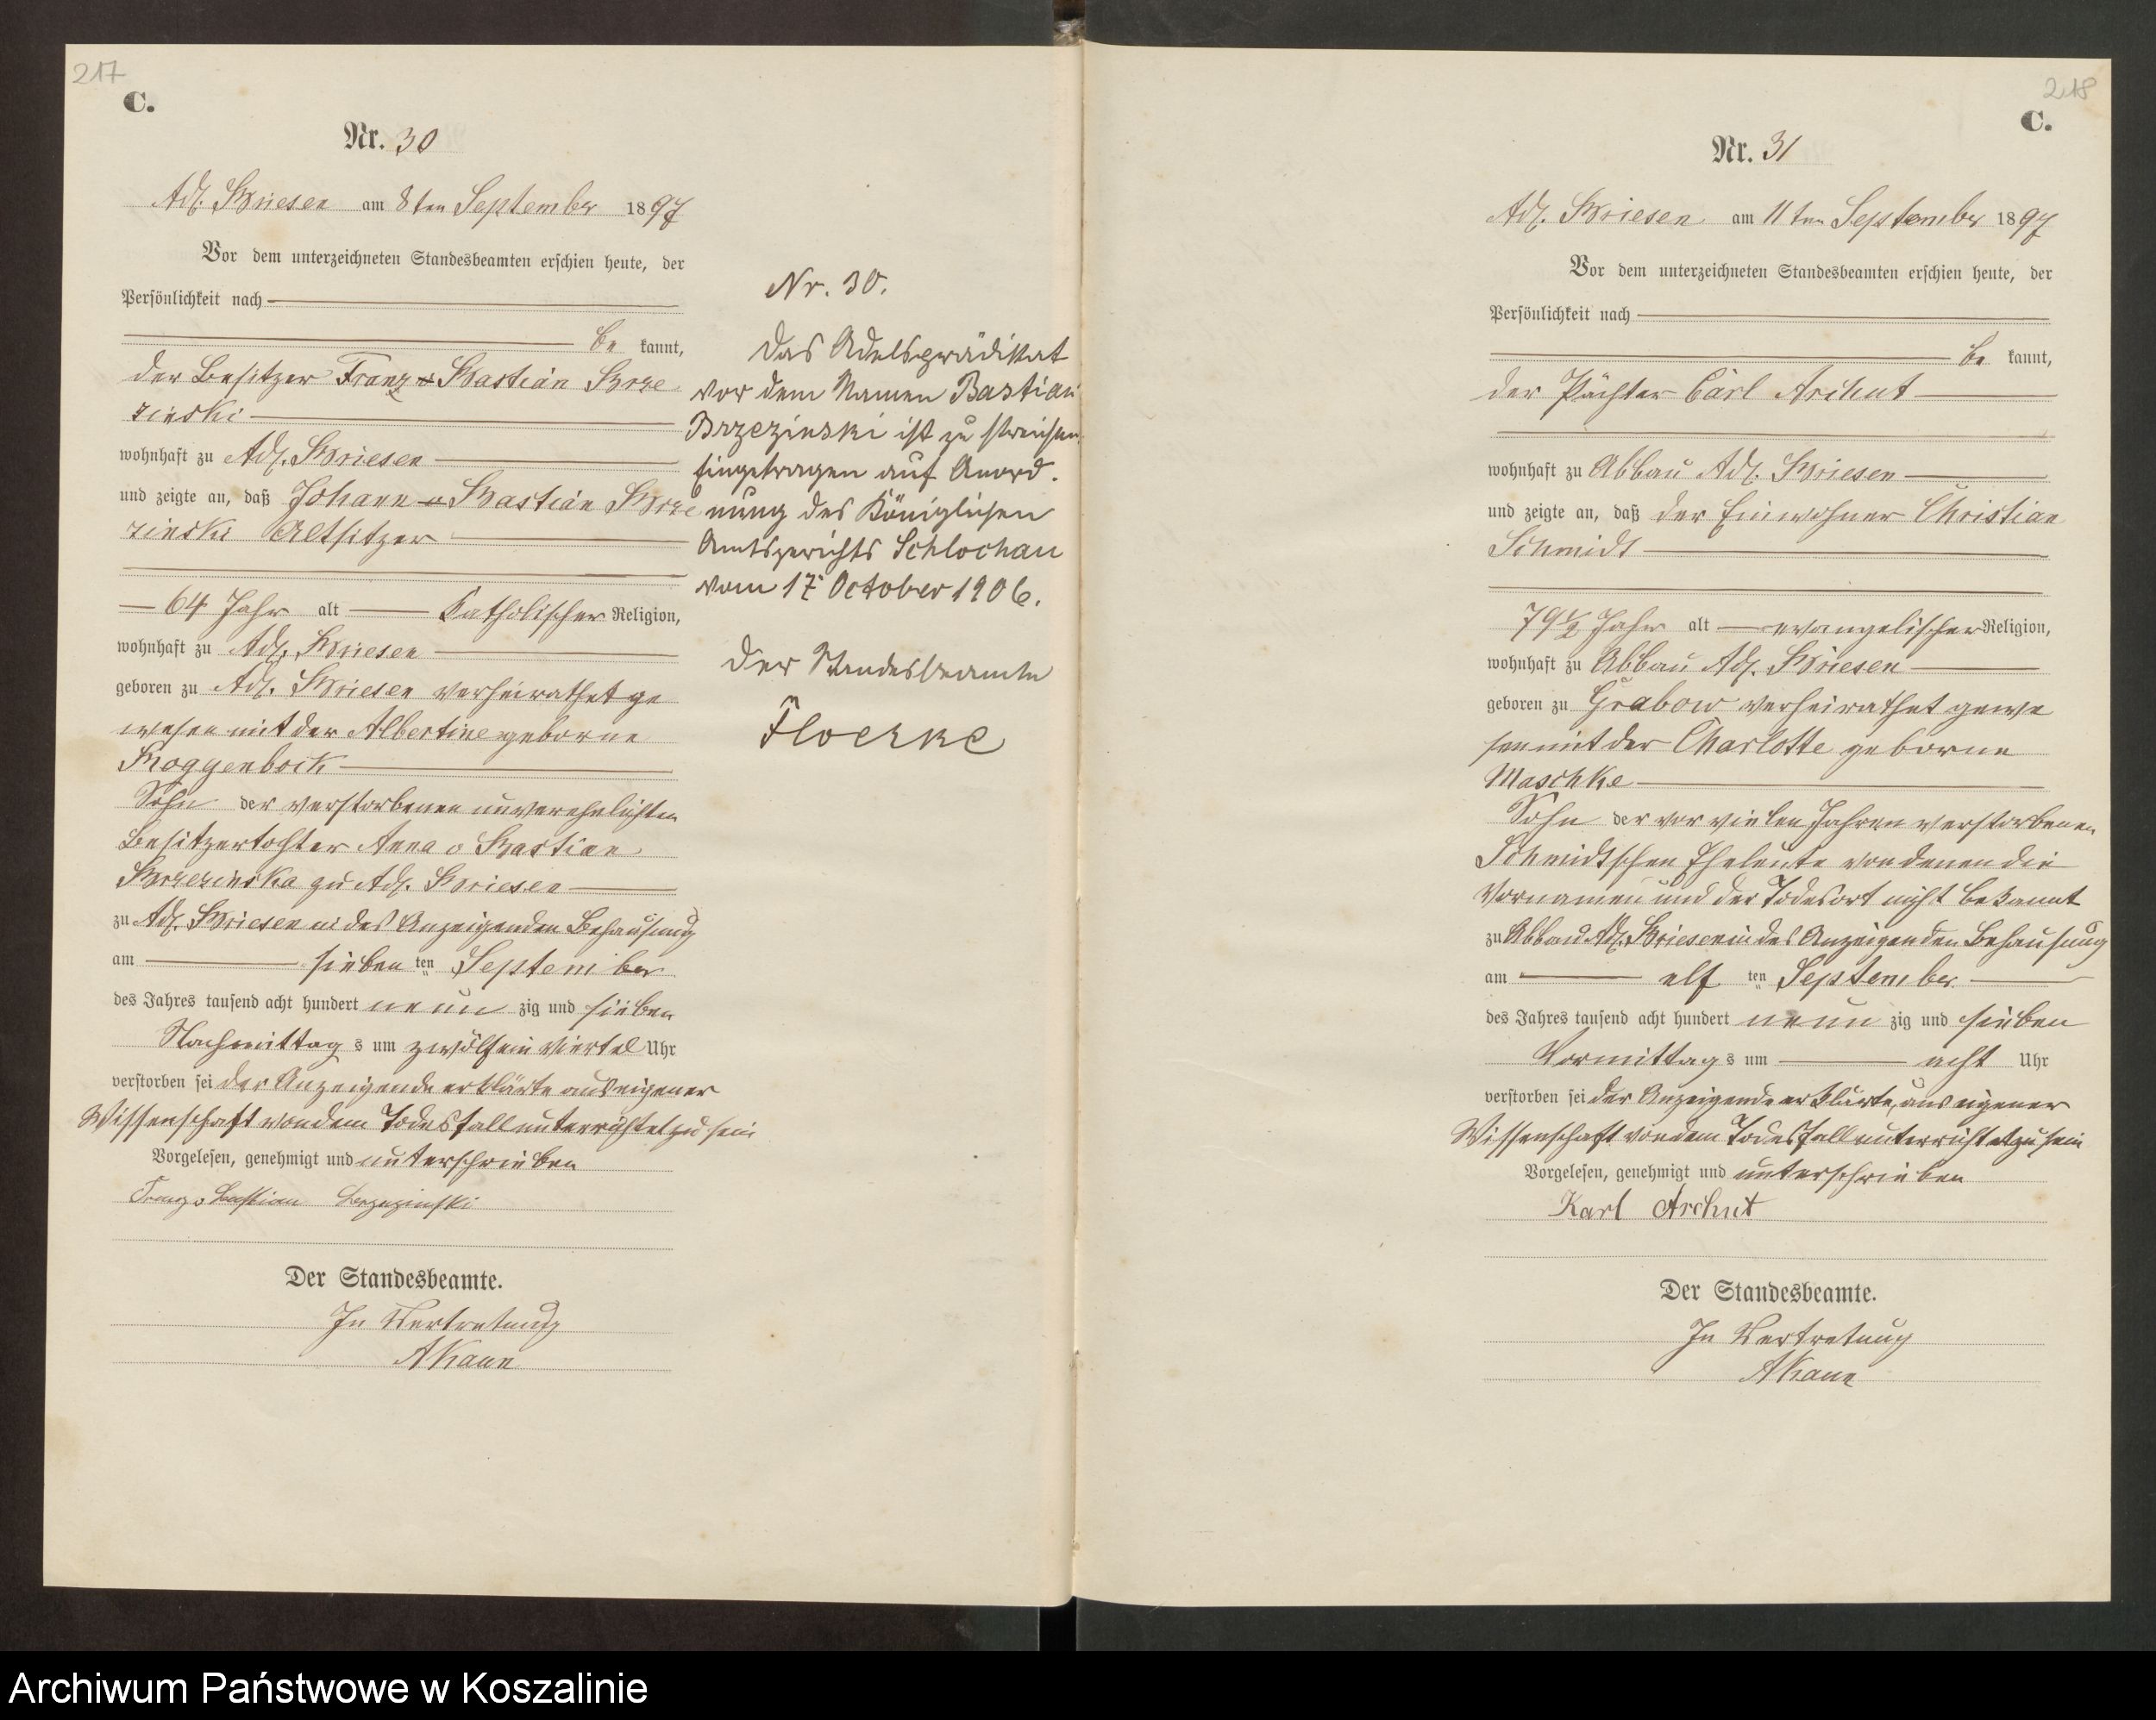 217
C.
Nr. 30
Adl. Briesen am 8ten September 1897
Vor dem unterzeichneten Standesbeamten erschien heute, der
Persönlichkeit nach
be kannt,
der Besitzer Franz v Bastian Brze
zinski
wohnhaft zu Adl. Briesen
und zeigte an, daß Johann v Bastian Brze
zinski Altsitzer
64 Jahr alt Katholischer Religion,
wohnhaft zu Adl. Briesen
geboren zu Adl. Briesen verheirathet ge
wesen mit der Albertine geborne
Roggenbock
Sohn der verstorbenen unverehelichten
Besitzertochter Anna v Bastian
Brzezinska zu Adl. Briesen
zu Adl. Briesen in des Anzeigenden Behausung
am sieben ten September
des Jahres tausend acht hundert neun zig und sieben
Nachmittag s um zwölfein viertel Uhr
verstorben sei der Anzeigende erklärte aus eigener
Wissenschaft von dem Todesfall unterrichtet zu sein
Vorgelesen, genehmigt und unterschrieben
Franz v Bastian Brzezinski
Der Standesbeamte.
In Vertretung
A Kann
Nr. 30.
Das Adelsprädikat
vor dem Namen Bastian
Brzezinski ist zu streichen.
Eingetragen auf Anord-
nung des Königlichen
Amtsgerichts Schlochau
vom 17. October 1906.
Der Standesbeamte
Floerke
218
C.
Nr. 31
Adl. Briesen am 11ten September 1897
Vor dem unterzeichneten Standesbeamten erschien heute, der
Persönlichkeit nach
be kannt,
der Pächter Carl Archut
wohnhaft zu Abbau Adl. Briesen
und zeigte an, daß der Einwohner Christian
Schmidt
79½ Jahr alt evangelischer Religion,
wohnhaft zu Abbau Adl. Briesen
geboren zu Grabow verheirathet gewe
sen mit der Charlotte geborne
Maschke
Sohn der vor vielen Jahren verstorbenen
Schmidtschen Eheleute von denen die
Vornamen und der Todesort nicht bekannt
zu Abbau Adl. Briesen in des Anzeigenden Behausung
am elf ten September
des Jahres tausend acht hundert neun zig und sieben
Vormittag s um acht Uhr
verstorben sei der Anzeigende erklärte, aus eigener
Wissenschaft von dem Todesfall unterrichtet zu sein
Vorgelesen, genehmigt und unterschrieben
Karl Archut
Der Standesbeamte.
In Vertretung
A Kann
Archiwum Państwowe w Koszalinie